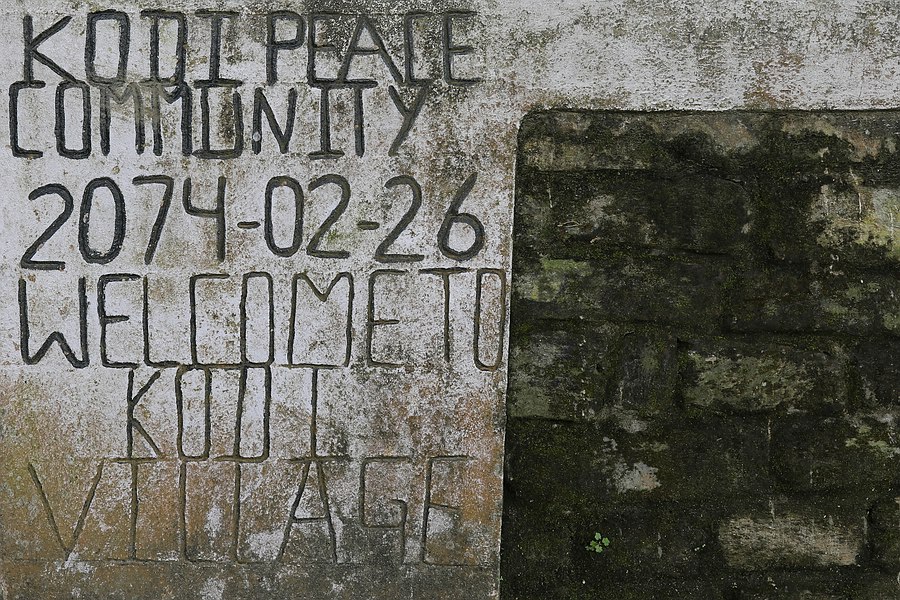 KODI PEACE
COMMUNITY
2074-02-26
WELCOME TO
KODI
VILLAGE